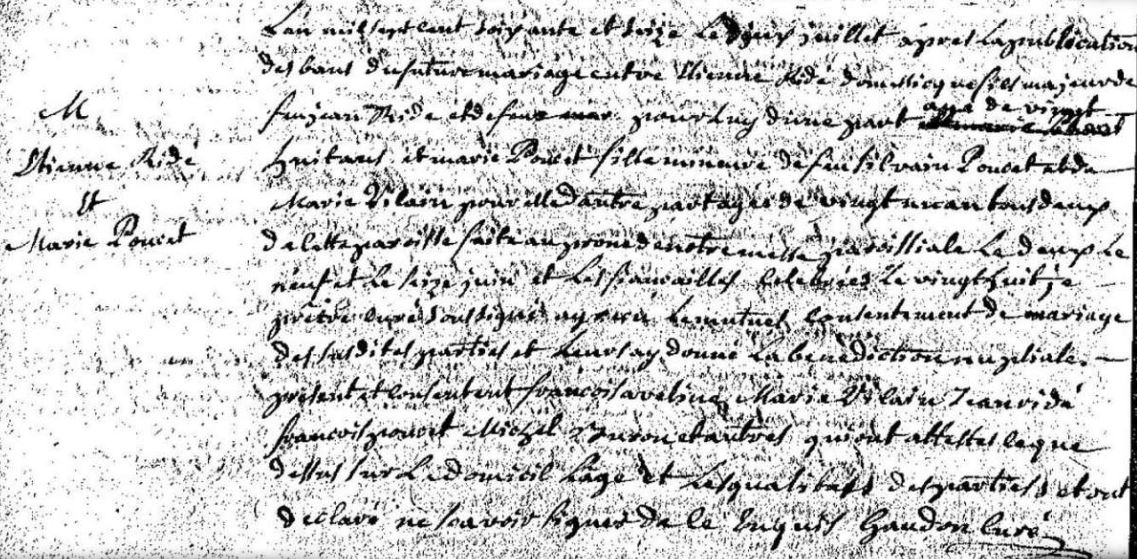 L'an mil sept cent soixante et seize Le deux juillet apres la publication
des bans du future mariage entre Etienne Ridé domesticque fils majeur de
M
feu jean Ride et de feue mar pour luy d'une part agé de vingt
Etienne Ridé
huit ans et marie Poucet fille mineure de feu Silvain Poucet et de
Et
Marie Vilain pour elle d'autre part agée de vingt un an tous deux
Marie Poucet
de cette paroisse faite au prone de notre messe paroissiale Le deux Le
neuf et Le seize juin et Les fiancailles celebrées Le vingt huit je
prêtre curé soussigné ay recu Le mutuel consentement de mariage
des susdites parties et Leurs ay donné La benediction nuptiale
présent et consentent francois aveline Marie Vilain Jean ridé
francois poucet Michel et autres qui ont attestes le que
dessus sur Le domicil L'age et Les qualités des parties et ont
declaré ne scavoir signer de ce enquis Gaudon Curé